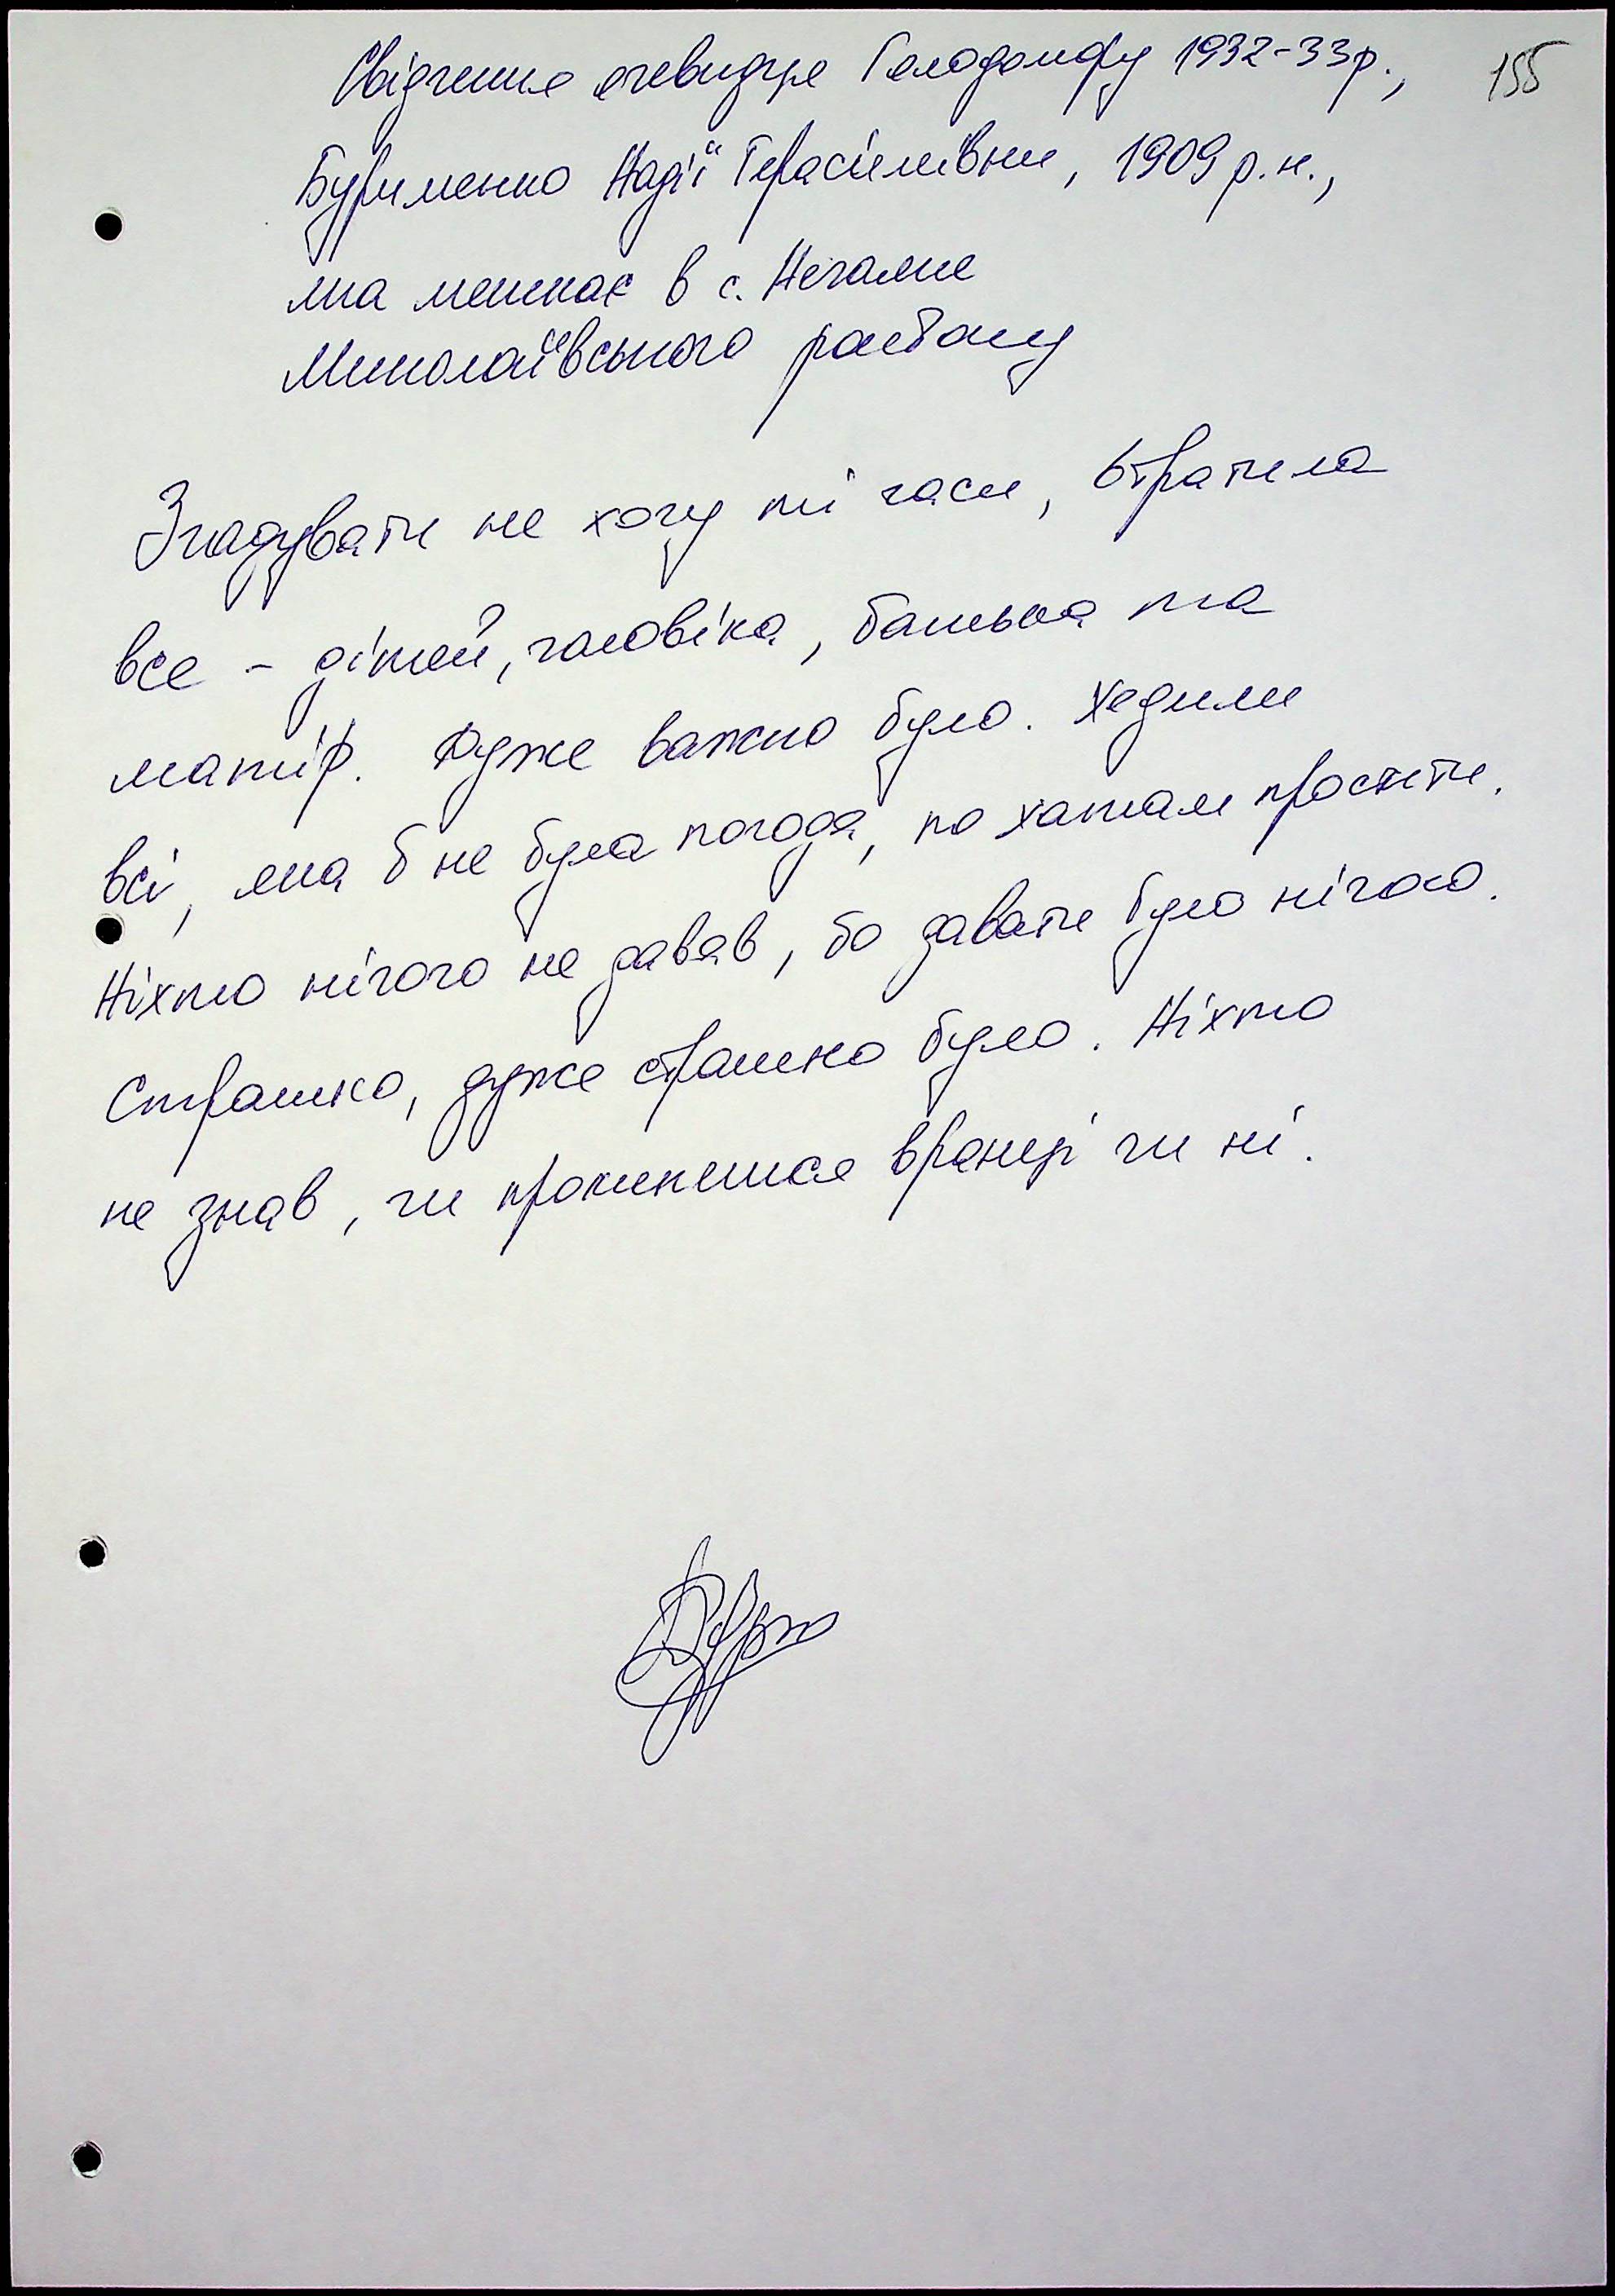 155
Свідчення очевидця Голодомору 1932-33р.,
Бурименко Надії Герасімівни, 1909 р.н.,
яка мешкає в с. Нечаяне
Миколаївського району
Згадувати не хочу ті часи, втратила
все - дітей, чоловіка, батька та
матір. Дуже важко було. Ходили
всі, яка б не була погода, по хатам просити.
Ніхто нічого не давав, бо давати було нічого.
Страшно, дуже страшно було. Ніхто
не знав, чи прокинешся вранці чи ні.